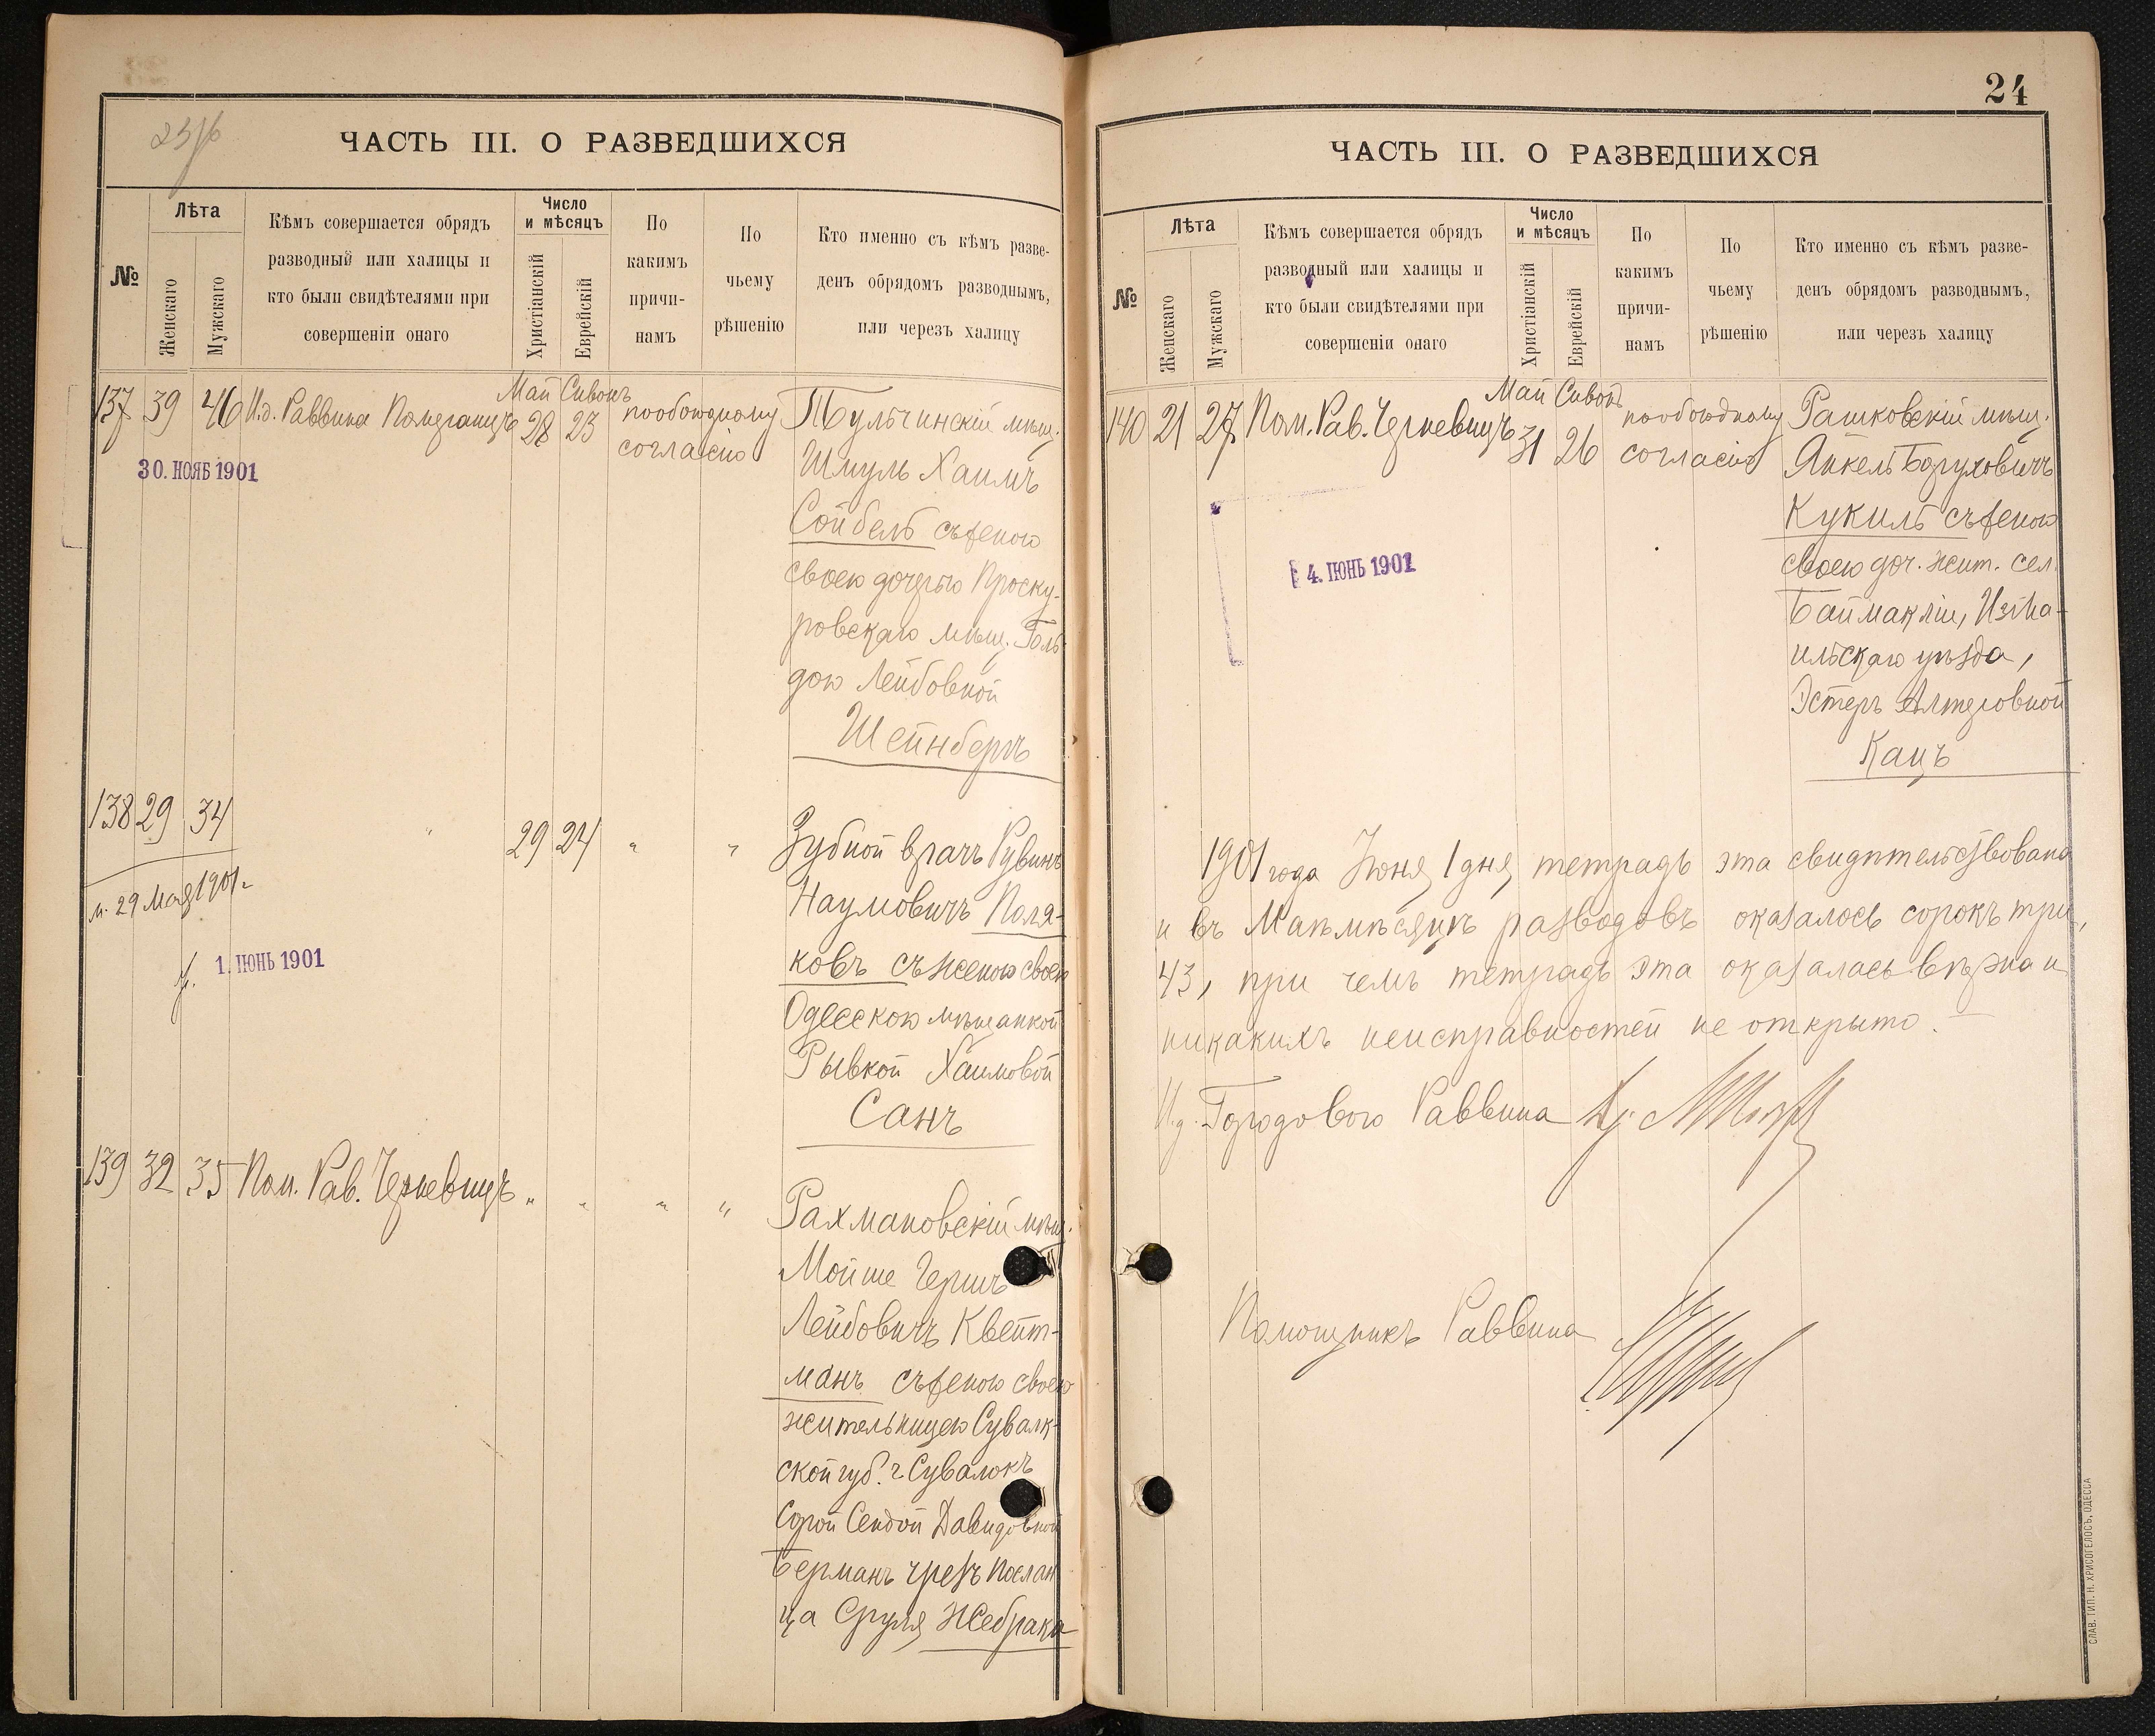 ЧАСТЬ III. О РАЗВЕДШИХСЯ
№
Лѣта
Женскаго
Мужскаго
Кѣмъ совершается обрядъ
разводный или халицы и
кто были свидѣтелями при
совершеніи онаго
Число
и мѣсяцъ
Христіанскій
Еврейскій
По
какимъ
причи-
намъ
По
чьему
рѣшенію
Кто именно съ кѣмъ разве-
денъ обрядомъ разводнымъ,
или черезъ халицу
Май Сивонъ
137 39 46 И.д. Раввина Померанцъ 28 23 по обоюдному
согласію
30. НОЯБ 1901
Тульчинскій мѣщ.
Шмуль Хаимъ
Сойбель съ женою
своею дочерью Проску-
ровскаго мѣщ. Голь-
дою Лейбовной
Шейнбергъ
138 29 34 " 29 24 " "
м. 29 Мая 1901 г.
1. ІЮНЬ 1901
Зубной врачъ Рувинъ
Наумовичъ Поля-
ковъ съ женою своею
Одесскою мѣщанкой
Рывкой Хаимовой
Санъ
139 32 35 Пом. Рав. Черневицъ " " " "
Рахмановскій мѣщ.
Мойше Гершъ
Лейбовичъ Квейт-
манъ съ женою своею
жительницею Сувалк-
ской губ. г Сувалокъ
Сорой Сендой Давидовной
Берманъ чрезъ послан-
ца Сруля Жебрака
24
ЧАСТЬ III. О РАЗВЕДШИХСЯ
№
Лѣта
Женскаго
Мужскаго
Кѣмъ совершается обрядъ
разводный или халицы и
кто были свидѣтелями при
совершеніи онаго
Число
и мѣсяцъ
Христіанскій
Еврейскій
По
какимъ
причи-
намъ
По
чьему
рѣшенію
Кто именно съ кѣмъ разве-
денъ обрядомъ разводнымъ,
или черезъ халицу
Май Сивонъ
140 21 27 Пом. Рав. Черневицъ 31 26 по обоюдному
согласію
4. ІЮНЬ 1901
Рашковскій мѣщ.
Янкель Боруховичъ
Кукиль съ женою
своею доч. жит. сел.
Баймакліи, Изма-
ильскаго уѣзда,
Эстеръ Алтеровной
Кацъ
1901 года Іюня 1 дня тетрадь эта свидѣтельствована
и въ Маѣ мѣсяцѣ разводовъ оказалось сорокъ три,
43, при чемъ тетрадь эта оказалась вѣрна и
никакихъ неисправностей не открыто.
И.д. Городового Раввина
Помощникъ Раввина
СЛАВ. ТИП. Н. ХРИСОГЕЛОСЪ, ОДЕССА